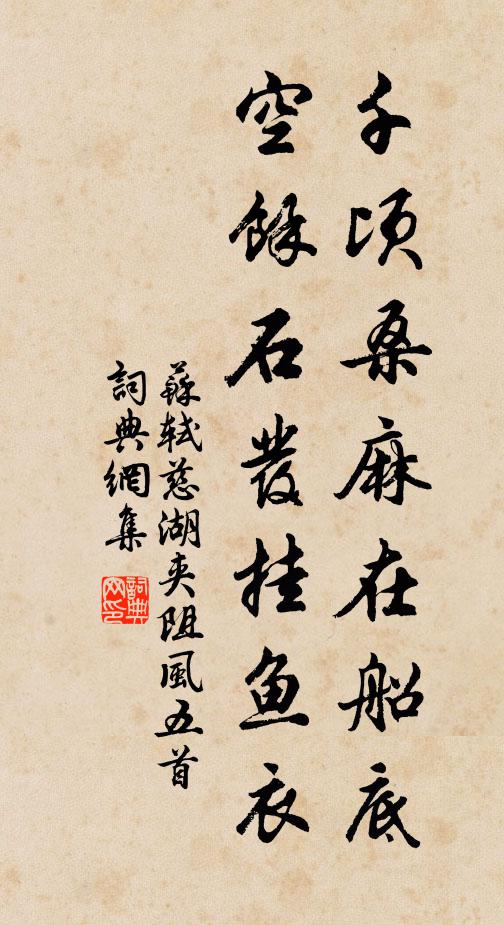 千頃桑麻在船底
空餘石發挂鱼衣
蘇軾慈湖夾阻風五首
詞典網集
詞典
网印